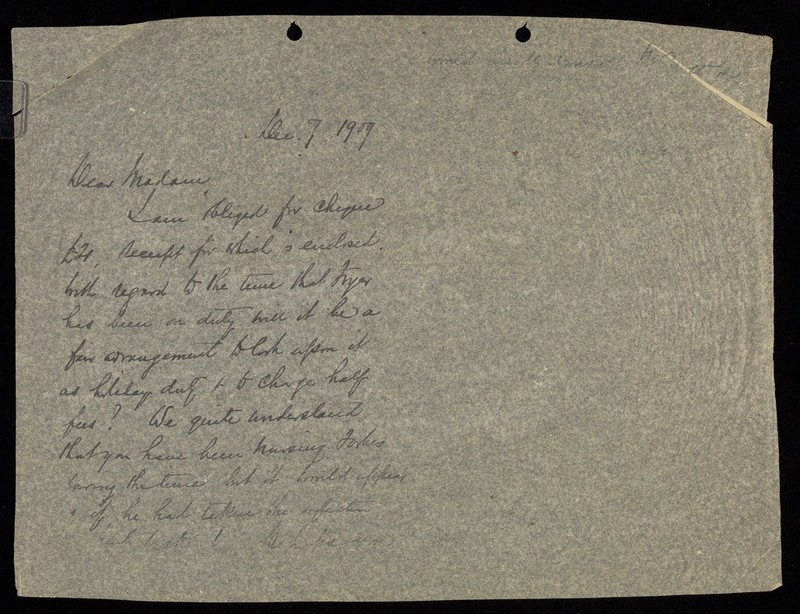 Dec. 7 1909
Dear Madam
I am obliged for cheque
receipt for which is enclosed.
With regard to the time that Fryer
has been on duty will it be a
fair arrangement to look upon it
as holiday duty & to charge half
fees? We quite understand
that you have been nursing Forbes
during the time but it would appear
as if he had taken the infection